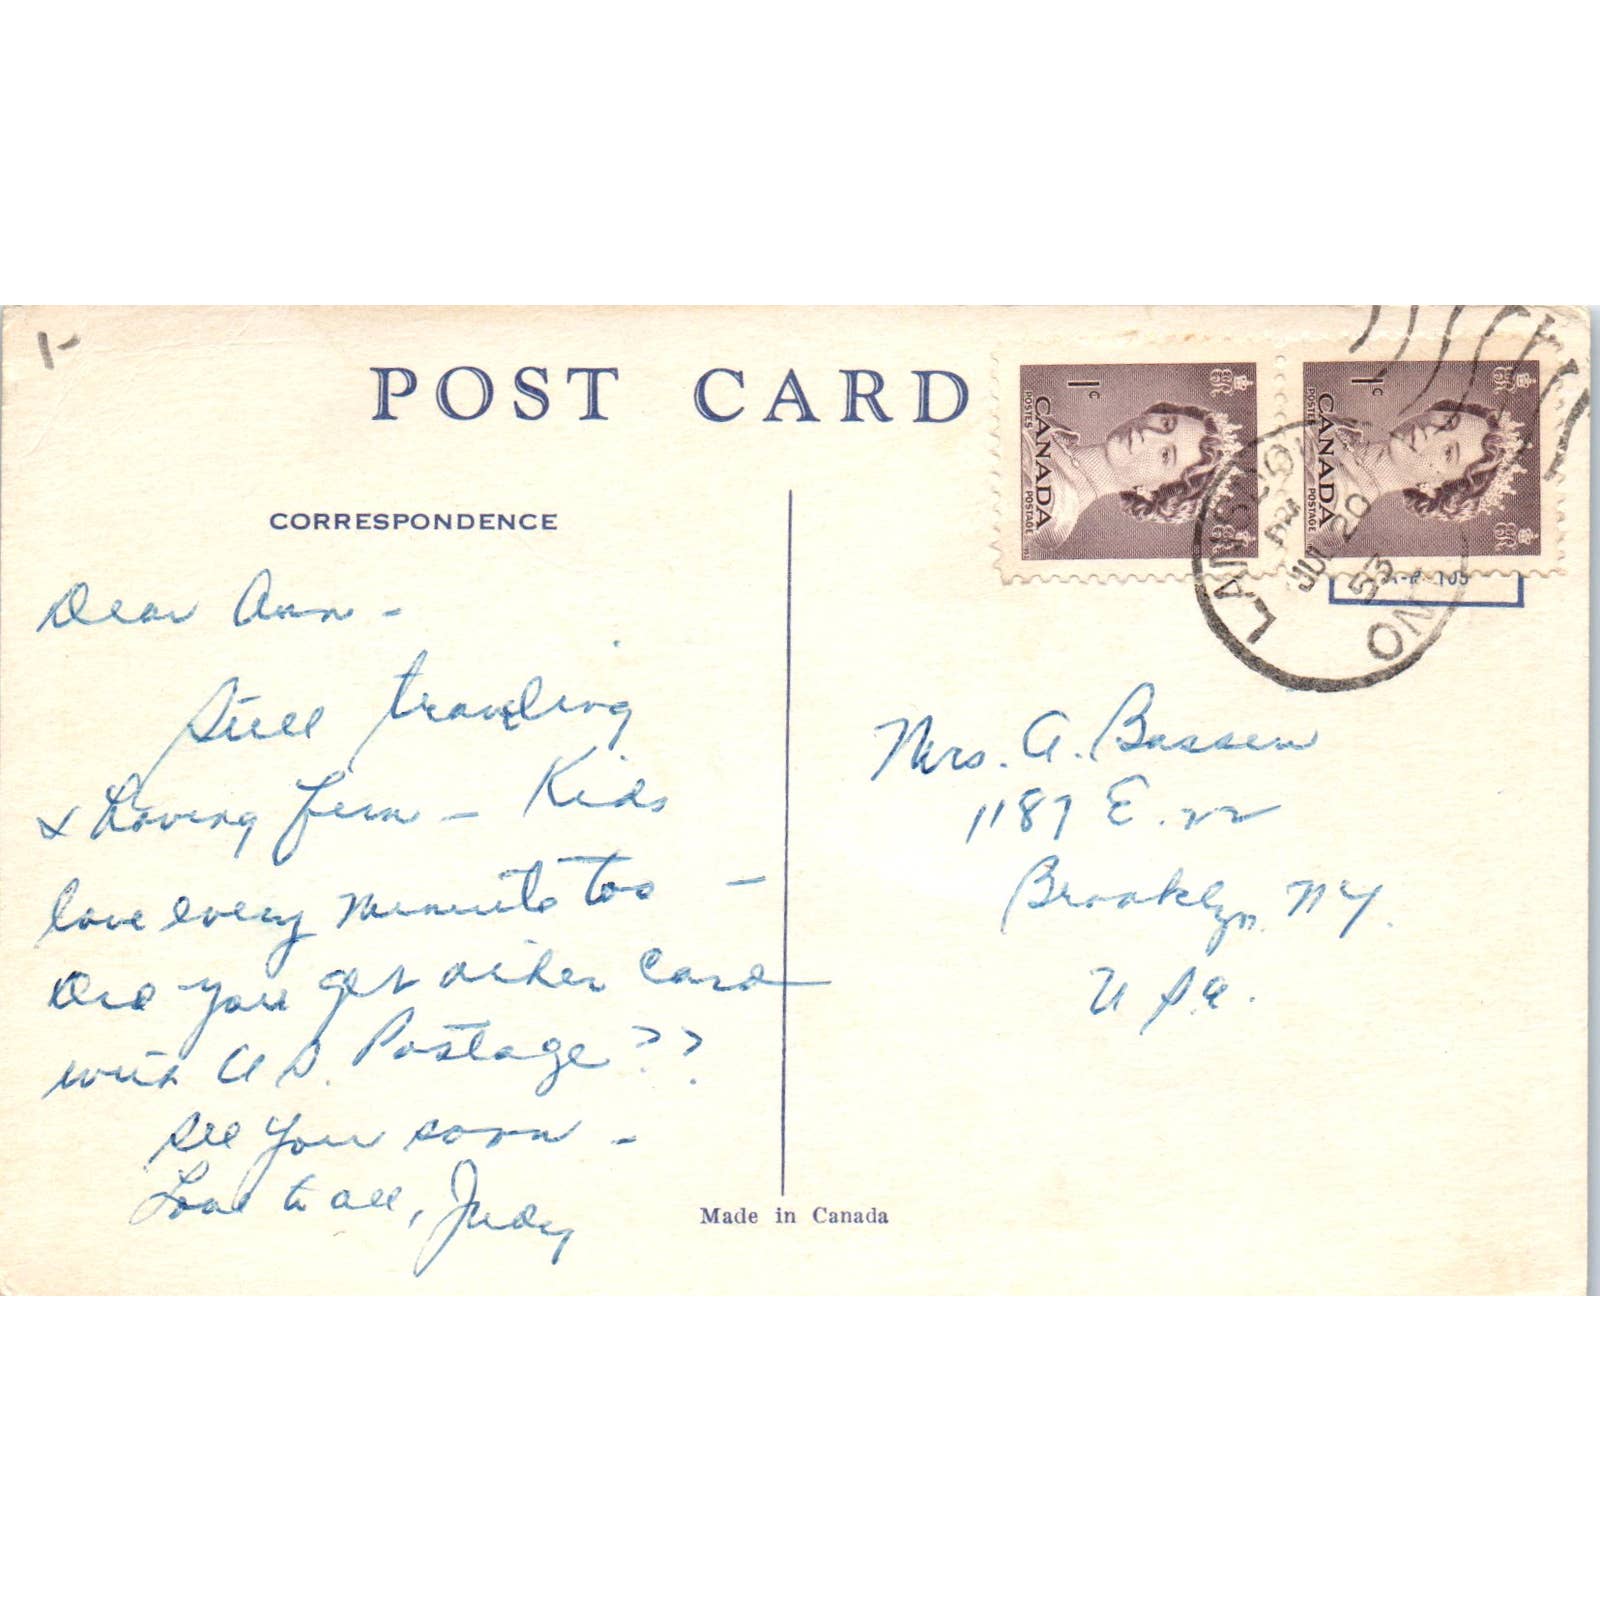 1-
POST CARD
CORRESPONDENCE
Dear Ann -
Still traveling
& having fun - Kids
love every minute too -
Did you get other card
with U S. Postage ??
See you soon -
Love to all, Judy
1c
CANADA
POSTES POSTAGE
1c
CANADA
POSTES POSTAGE
PM
JUL 20
53
ONT
Mrs. A. Bassen
1187 E. 22
Brooklyn, N Y.
U S.A.
Made in Canada